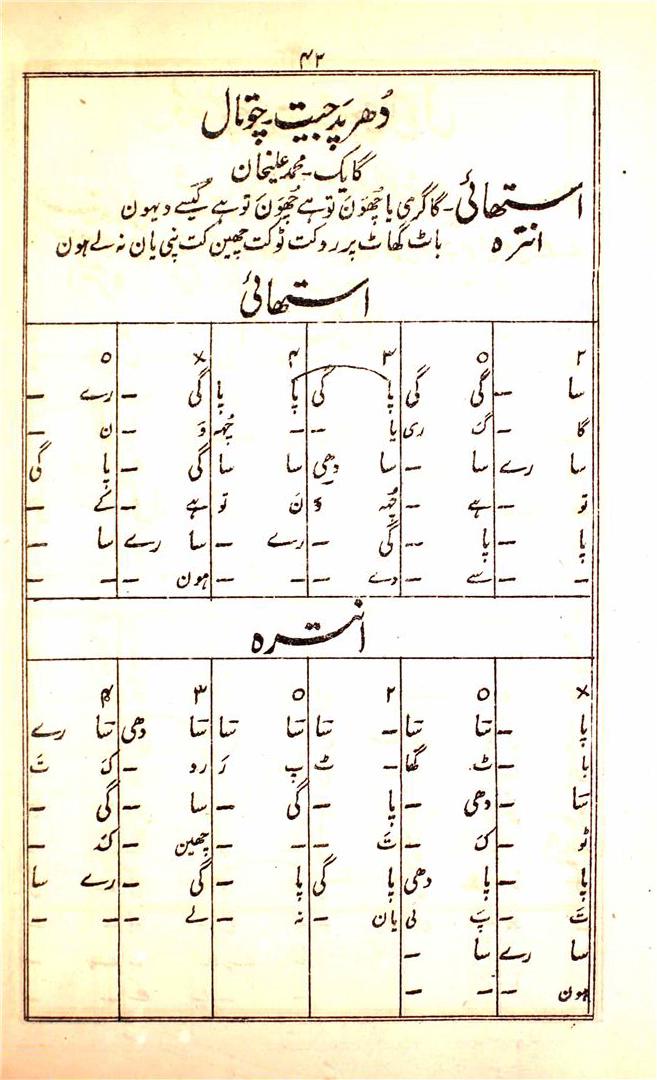 ۴۲
دُھرپد جیت - چوتال
گایک - محمد علیخان
استھائی - گاگری یا چھُوَن توہے چھُوَن توہے کیسے دیہون
انترہ باٹ گھاٹ پر روکت ٹوکت چھین کت پنی یان نہ لے ہون
استھائی
۲ ۵ ۳ ۴ × ۵
سا – گی گی پا گی پا پا گی – رے –
گا – گ ری یا – – چھُ وَ – ن –
سا رے سا – سا دھی سا سا گی – پا گی
تو – ہے – چھُ وَ نَ تو ہے – کے –
پا – پا – گی – رے – سا رے سا –
– – سے – دے – – – ہون – – –
انترہ
× ۵ ۲ ۵ ۳ ۴
پا – تا تا – تا تا تا تا دھی تا رے
با – ٹ گھا – ٹ پ رَ رو – ک تَ
تا – دھی – پا – گی – سا – گی –
ٹو – ک – تَ – – – چھین – کہ –
پا – پا دھی پا گی پا – گی – رے سا
تَ – پَ نی یان – نہ – لے – – –
سا رے سا –
ہون – – –